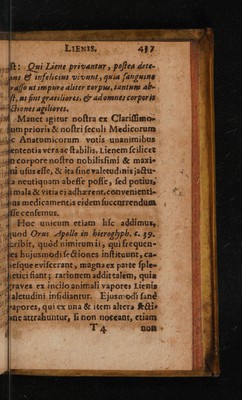 LIENIS. 437
st: Qui Liene privantur, postea dete-
ins & infelicius vivunt, quia sanguine
rasso ut impuro aliter corpus, tantum ab-
st, ut sint graciliores, & ad omnes corporis
ctiones agiliores.
Manet igitur nostra ex Clarissimo-
um prioris & nostri seculi Medicorum
c Anatomicorum votis unanimibus
ententia vera ac stabilis, Lienem scilicet
n corpore nostro nobilissimi & maxi-
ni usus esse, & ita sine valetudinis jactu-
a neutiquam abesse posse, sed potius,
i mala & vitia ei adhærent, convenienti-
us medicamentis eidem succurrendum
sse censemus.
Hoc unicum etiam hic addimus,
quod Orus Apollo in hieroglyph. c. 39.
cribit, quòd nimirum ii, qui frequen-
es hujusmodi sectiones instituunt, ca-
esque eviscerant, magna ex parte sple-
etici fiant; rationem addit talem, quia
raves ex incilo animali vapores Lienis
aletudini insidiantur. Ejusmodi sanè
apores, qui ex una & item altera secti-
ne attrahuntur, si non noceant, etiam
T 4 non